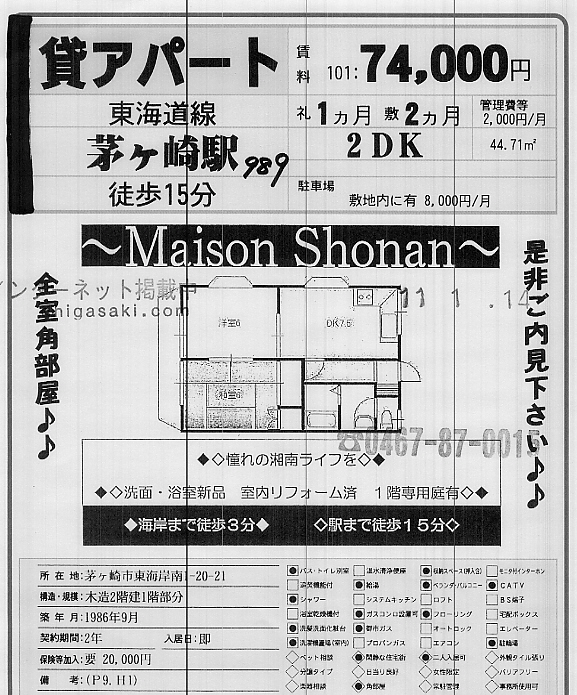 貸アパート
賃料 101: 74,000円
東海道線
礼 1ヵ月 敷 2ヵ月
管理費等 2,000円/月
茅ヶ崎駅 989
2DK
44.71㎡
徒歩15分
駐車場
敷地内に有 8,000円/月
〜Maison Shonan〜
全室角部屋♪♪
是非ご内見下さい♪♪
インターネット掲載中
higasaki.com
11 1 .14
洋室6
DK7.5
和室6
☎0467-87-0015
◆◇憧れの湘南ライフを◇◆
◆◇洗面・浴室新品 室内リフォーム済 1階専用庭有◇◆
◆海岸まで徒歩3分◆ ◇駅まで徒歩15分◇
所在地:茅ヶ崎市東海岸南1-20-21
構造・規模:木造2階建1階部分
築年月:1986年9月
契約期間:2年 入居日:即
保険等加入:要 20,000円
備考:(P9, H1)
●バス・トイレ別室 □温水清浄便座 ●収納スペース(押入含) □モニタ付インターホン
□追焚機能付 ●給湯 ●ベランダ・バルコニー ●CATV
●シャワー □システムキッチン □ロフト □BS端子
□浴室乾燥機付 ●ガスコンロ設置可 ●フローリング □宅配ボックス
●洗髪洗面化粧台 ●都市ガス □オートロック □エレベーター
●洗濯機置場(室内) □プロパンガス □エアコン ●駐輪場
◇ペット相談 ●閑静な住宅街 ●二人入居可 ◇外観タイル張り
◇分譲タイプ ◇日当り良好 ◇女性限定 ◇バリアフリー
◇楽器相談 ●角部屋 ◇常駐管理 ◇事務所使用可